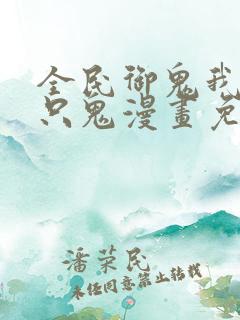 全民御鬼我
只鬼漫畫免
潘荣民
未经同意禁止转载